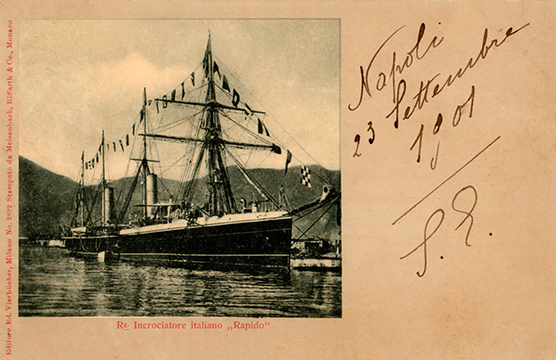 Editore Ed. Vierbücher, Milano No. 2872 Stampato da Meisenbach, Riffarth & Co., Monaco
Ra. Incrociatore italiano „Rapido“
Napoli
23 Settembre
1901
S. E.